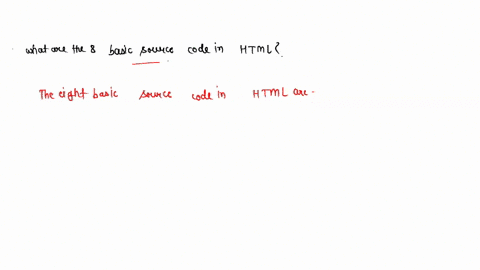 what are the 8 basic source code in HTML?
The eight basic source code in HTML are.